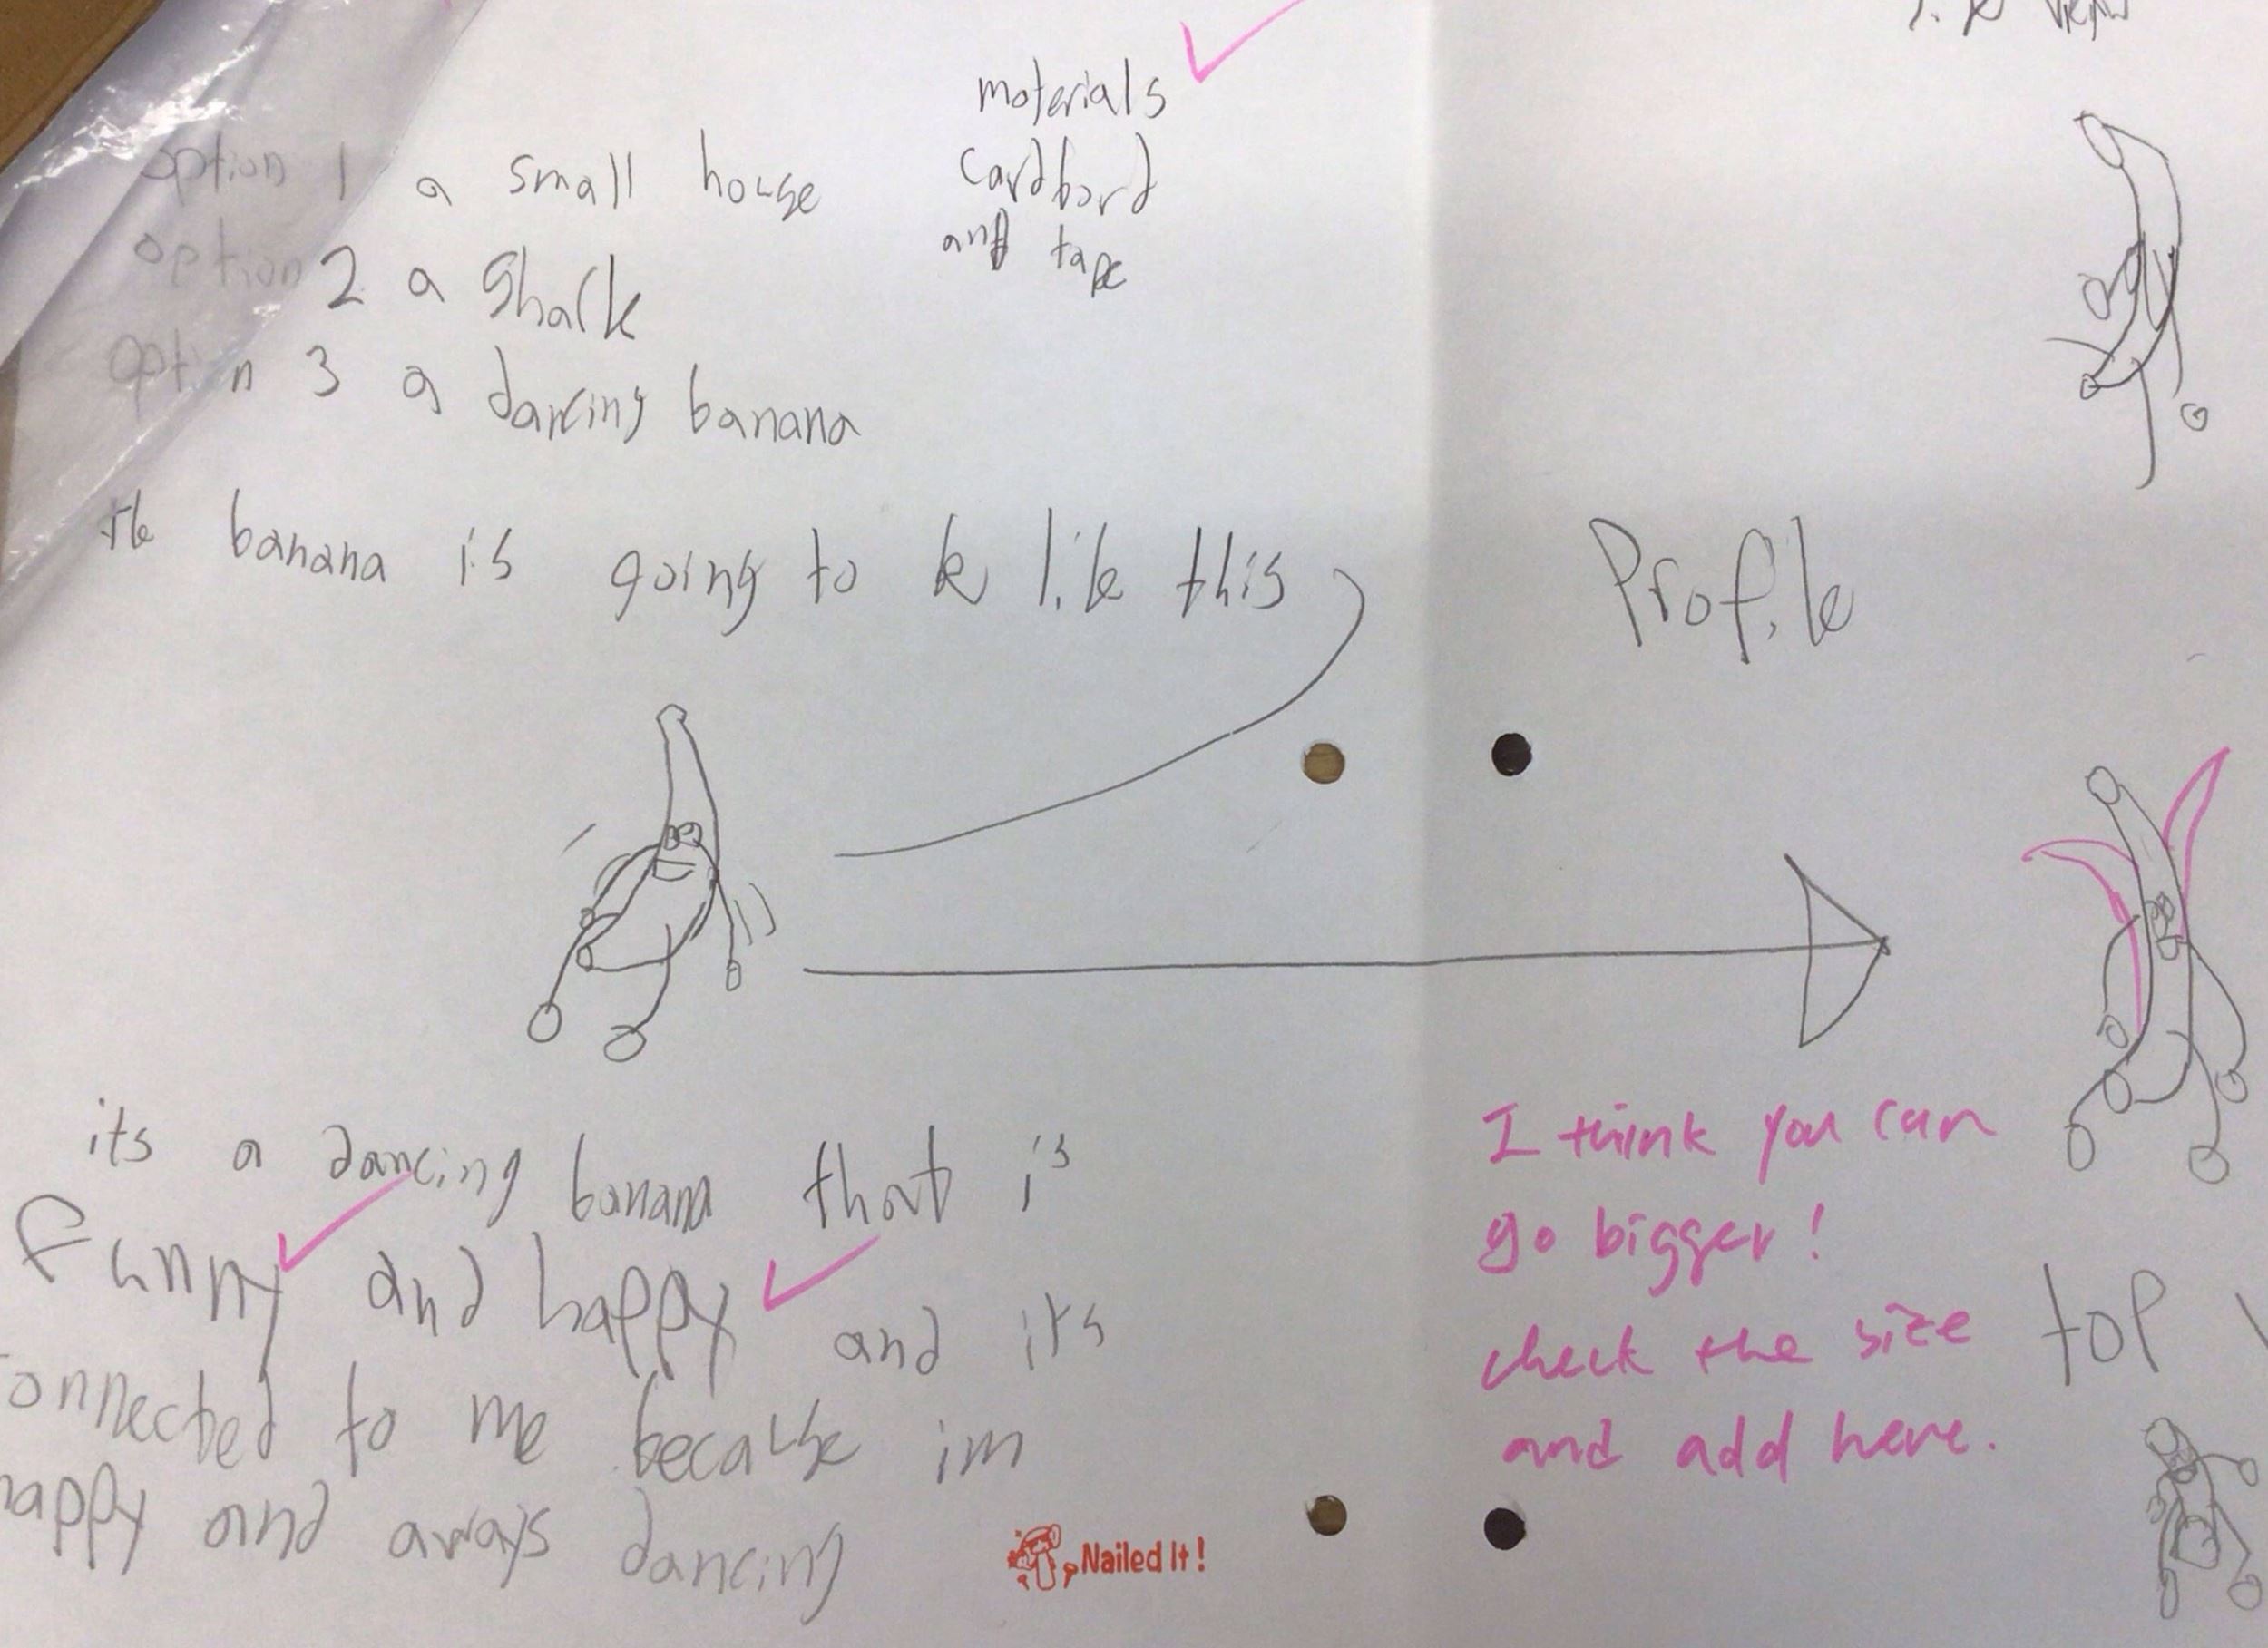 materials
cardbord
and tape
option 1 a small house
option 2 a shark
option 3 a dancing banana
the banana is going to be like this
its a dancing banana that is
funny and happy and its
onnected to me because im
happy and aways dancing
Nailed It!
view
Profile
I think you can
go bigger!
check the size
and add here.
top